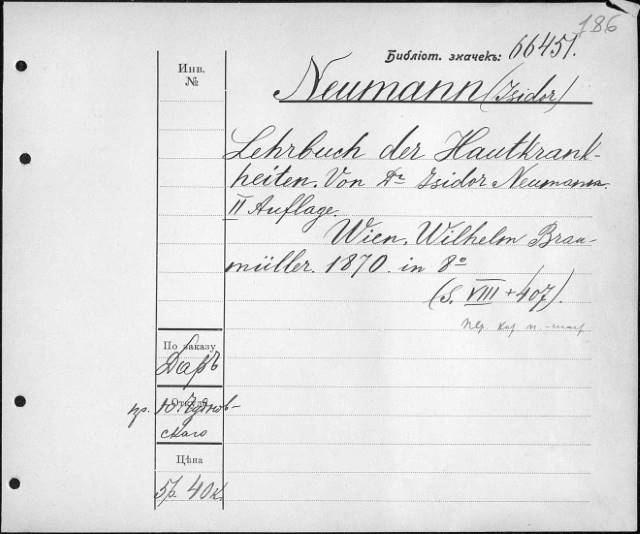 186
Библіот. значекъ: 66451.
Инв.
№
Neumann (Isidor)
Lehrbuch der Hautkrank-
heiten. Von Dr Isidor Neumann.
II Auflage.
Wien. Wilhelm Brau-
müller. 1870. in 8o
(S. VIII + 407).
По заказу
Даръ
Откуда
пр. Ю. Чуднов-
скаго
Цѣна
5р. 40к.